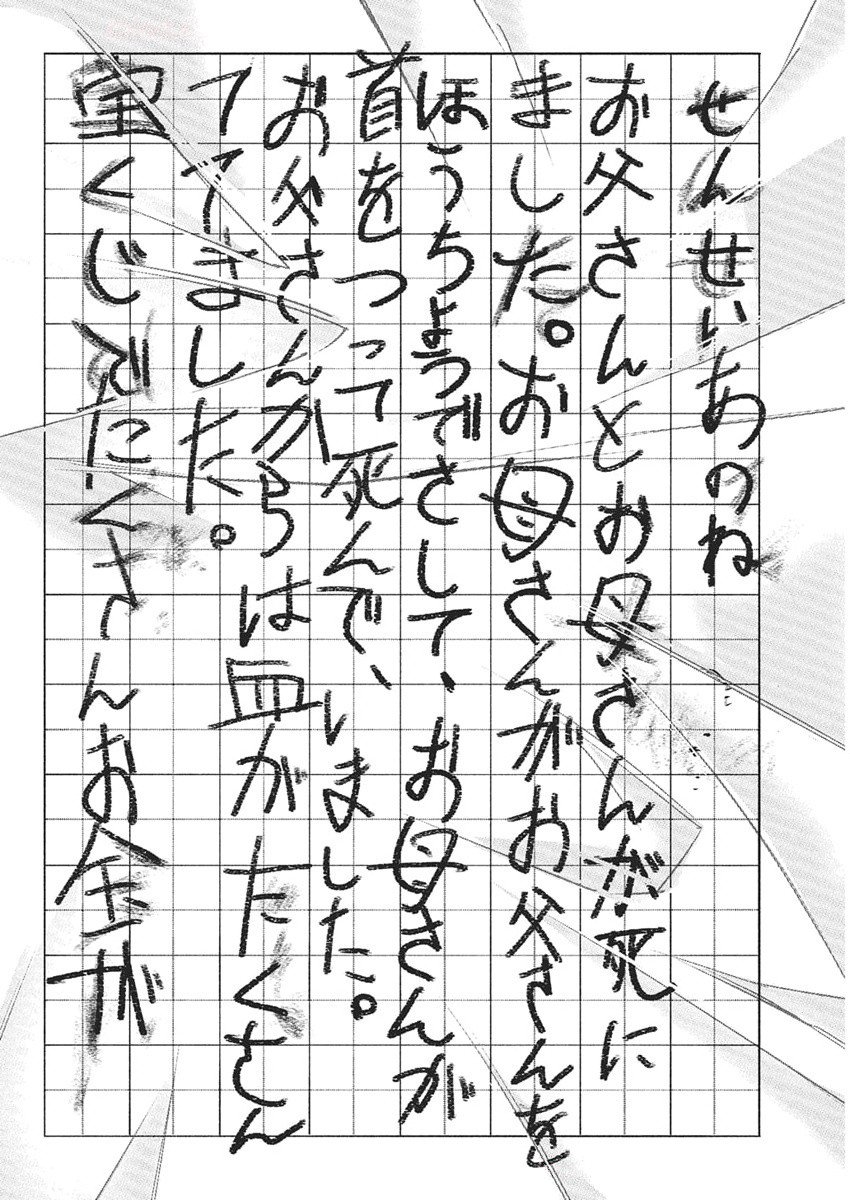 せんせいあのね
お父さんとお母さんが死に
ました。お母さんがお父さんを
ほうちょうでさして、お母さんが
首をつって死んで、いました。
お父さんからは血がたくさん
ててました。
宝くじでたくさんお金が